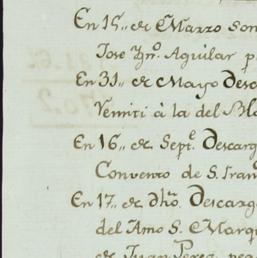 En 15,, de Marzo son
Jose Ygn.º Aguilar p
En 31,, de Mayo Desc
Remiti à la del Bla
En 16,, de Sept.e Descarg
Convento de S. Fran
En 17,, de dho. Descarg
del Amo S. Marqu
de Juan Perez, peg